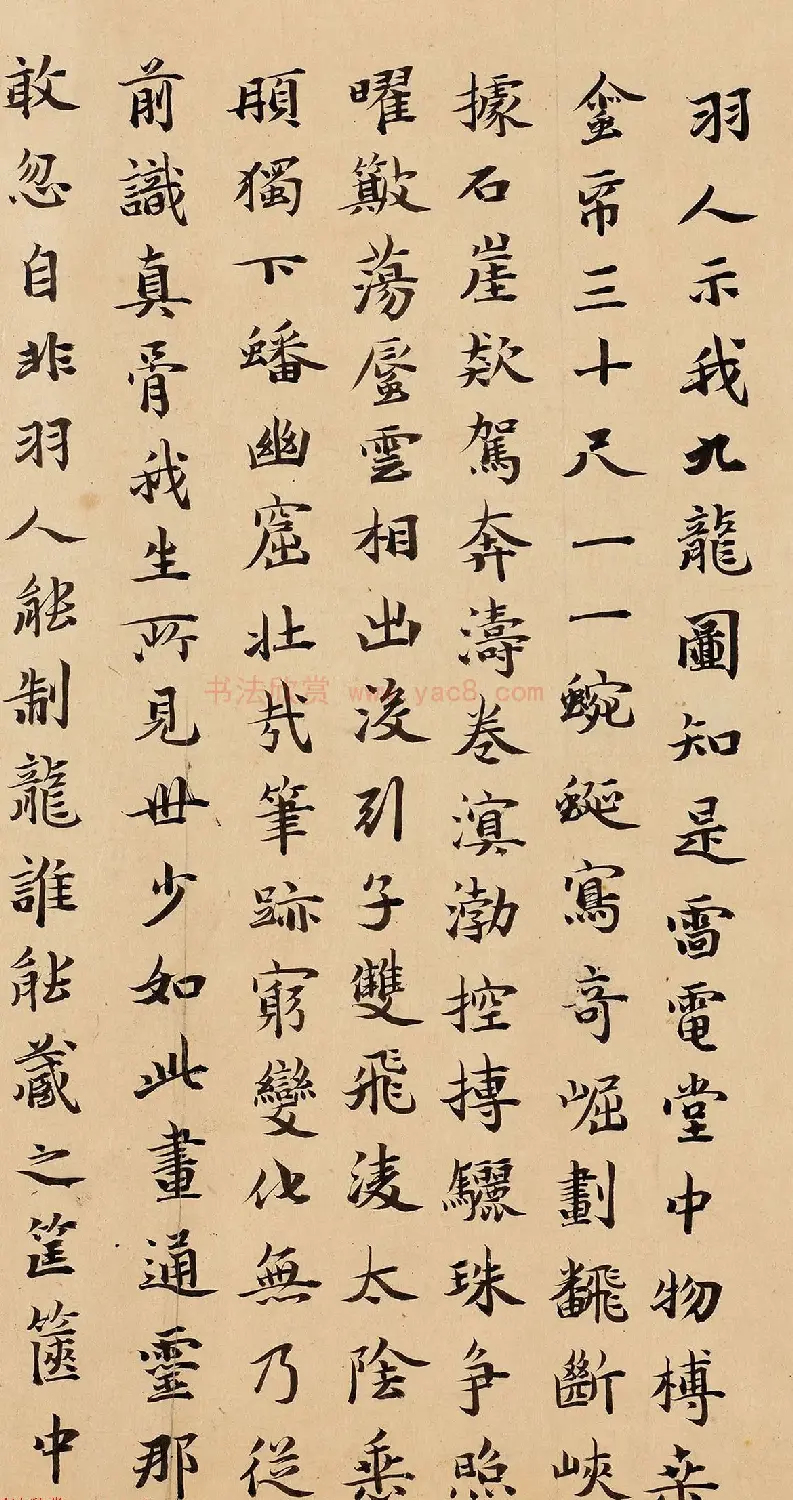 羽人示我九龍圖知是雷電堂中物榑桒
帋三十尺一一蜿蜒寫奇崛劃飜斷峽
據石崖欻駕奔濤卷溟渤控搏驪珠争照
曜簸蕩蜃雲相出没引子雙飛淩太陰垂
獨下蟠幽窟壯哉筆跡窮變化無乃從
前識真骨我生所見世少如此畫通靈那
敢忽自非羽人能制龍誰能藏之筐篋中
书法欣赏 www.yac8.com